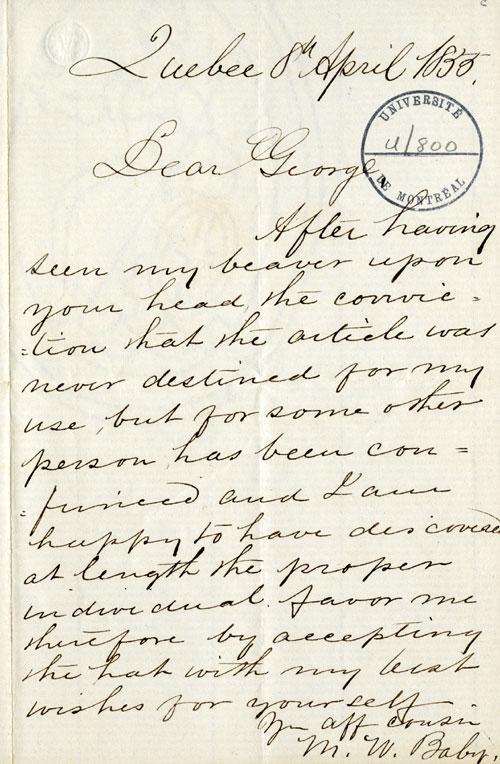 Quebec 8th April 1855.
UNIVERSITÉ
U/800
DE MONTRÉAL
Dear George,
After having
seen my beaver upon
your head, the convic =
=tion that the article was
never destined for my
use, but for some other
person, has been con =
=firmed and I am
happy to have discovered
at length the proper
individual. favor me
therefore by accepting
the hat with my best
wishes for yourself
Yr aff cousin
M. W. Baby.